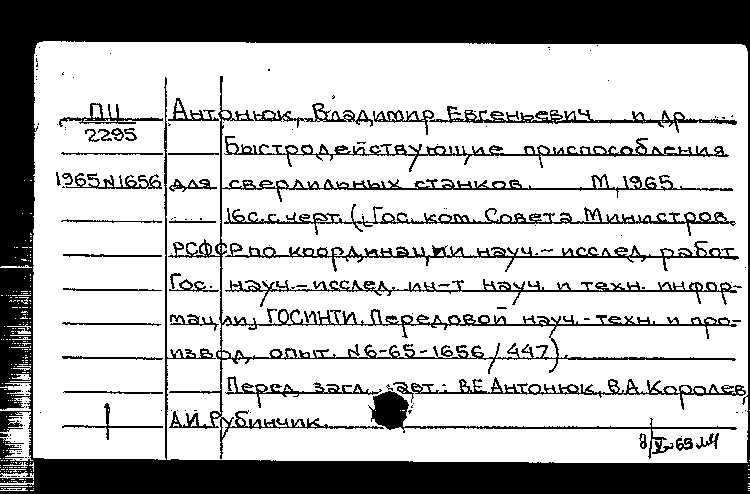 ПЦ Антонюк, Владимир Евгеньевич и др
2295
Быстродействующие приспособления
1965 N1656 для сверлильных станков. М, 1965.
16с. с черт. (Гос. ком. Совета Министров
РСФСР по координации науч.-исслед. работ
Гос. науч.-исслед. ин-т науч. и техн. инфор-
мации, ГОСИНТИ. Передовой науч.-техн. и про-
извод. опыт. N6-65-1656/447).
Перед загл. авт.: В.Е.Антонюк, В.А.Королев,
А.И.Рубинчик.
8/V-65